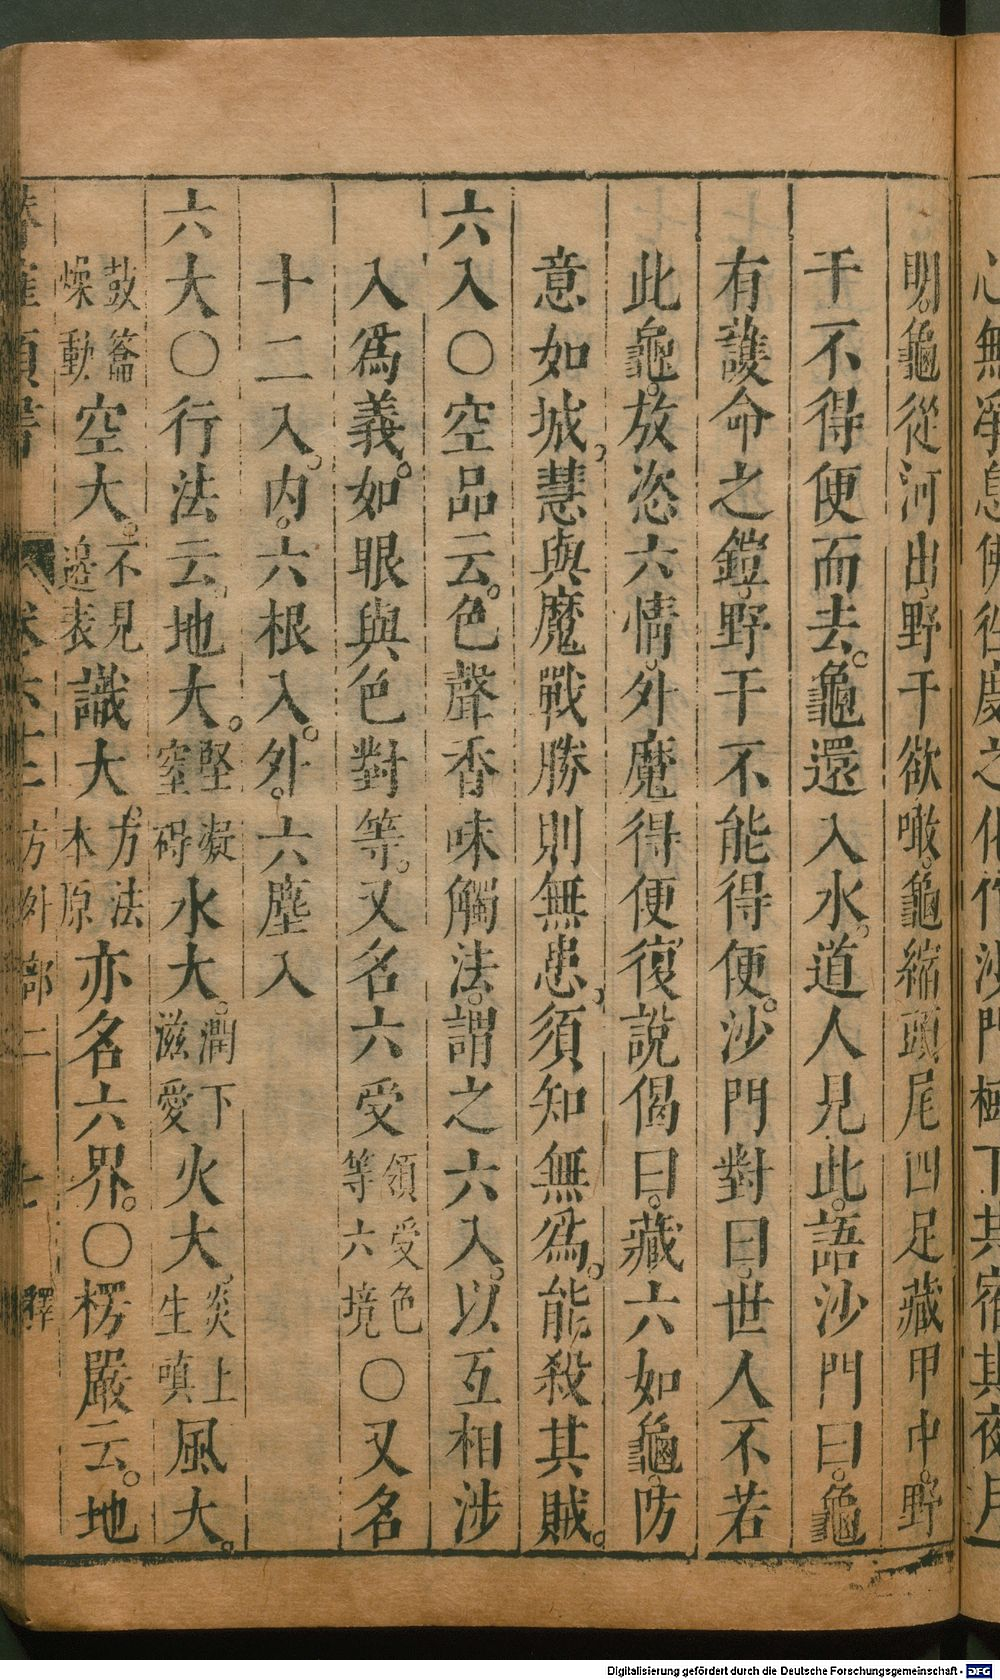 心無淨息佛徃度之化作沙門樹下共宿其夜月
明。龜從河出。野干欲噉。龜縮頭尾四足藏甲中。野
干不得便而去。龜還入水。道人見此。語沙門曰。龜
有護命之鎧。野干不能得便。沙門對曰。世人不若
此龜。放恣六情。外魔得便。復說偈曰。藏六如龜。防
意如城。慧與魔戰勝則無患。須知無爲。能殺其賊。
六入〇空品云。色聲香味觸法。謂之六入。以互相涉
入爲義。如眼與色對等。又名六受領受色等六境〇又名
十二入。内。六根入。外。六塵入
六大〇行法云。地大。堅凝窒碍水大。潤下滋愛火大。炎上生嗔風大。
鼓籥燥動空大。不見邊表識大方法本原亦名六界。〇楞嚴云。地
卷六十二 方外部二 七 釋
Digitalisierung gefördert durch die Deutsche Forschungsgemeinschaft - DFG